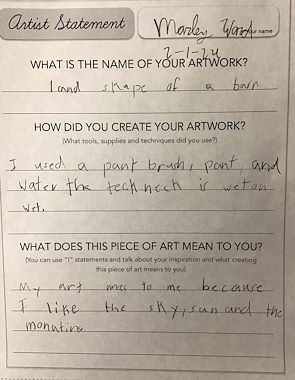 Artist Statement
Marley Ward
your name
2-1-24
WHAT IS THE NAME OF YOUR ARTWORK?
land skape of a barn
HOW DID YOU CREATE YOUR ARTWORK?
(What tools, supplies and techniques did you use?)
I used a pant brush, pant, and
water the teckneck is wet on
wet.
WHAT DOES THIS PIECE OF ART MEAN TO YOU?
(You can use "I" statements and talk about your inspiration and what creating
this piece of art means to you)
My art mes to me because
I like the sky, sun and the